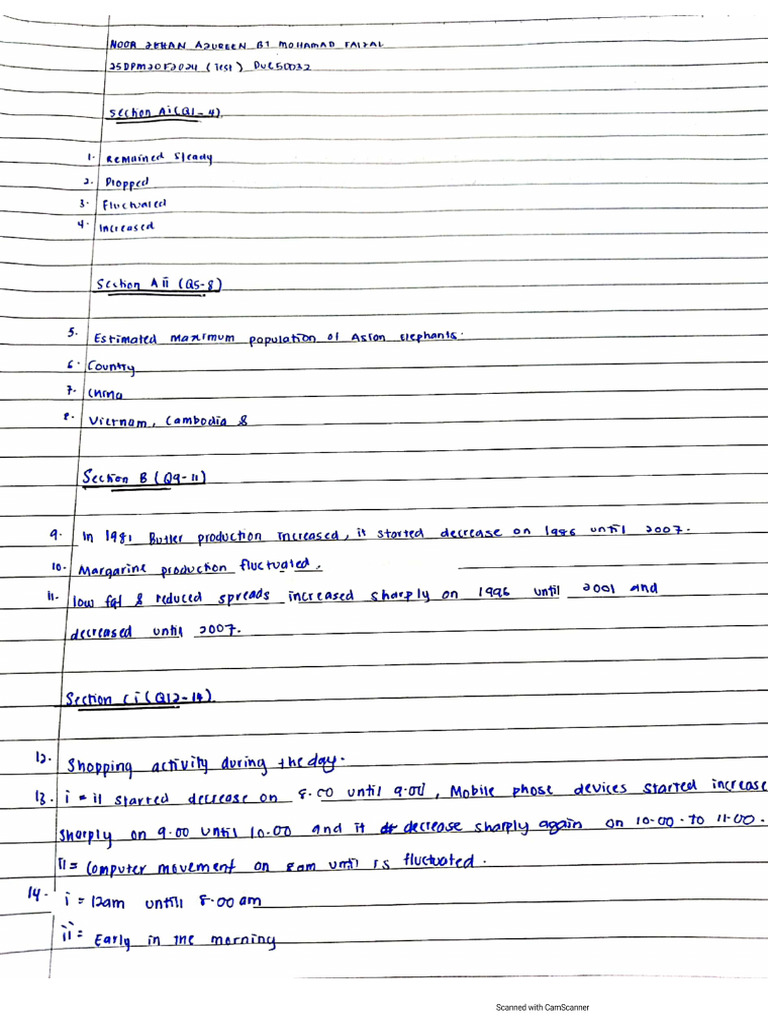 NOOR ZEHAN AZUREEN BT MOHAMAD FAIZAL
25DPM20F2024 (Test) DUE50032
Section Ai (Q1-4)
1. Remained Steady
2. Dropped
3. Fluctuated
4. Increased
Section A ii (Q5-8)
5. Estimated maximum population of Asian elephants.
6. Country
7. China
8. Vietnam, Cambodia &
Section B (Q9-11)
9. In 1981 Butter production increased, it started decrease on 1986 until 2007.
10. Margarine production fluctuated.
11. low fat & reduced spreads increased sharply on 1996 until 2001 and
decreased until 2007.
Section C i (Q12-14)
12. Shopping activity during the day.
13. i = it started decrease on 8.00 until 9.00, Mobile phose devices started increase
sharply on 9.00 until 10.00 and it decrease sharply again on 10.00 to 11.00.
ii = Computer movement on 8am until is fluctuated.
14. i = 12am untill 8.00 am
ii = Early in the morning
Scanned with CamScanner